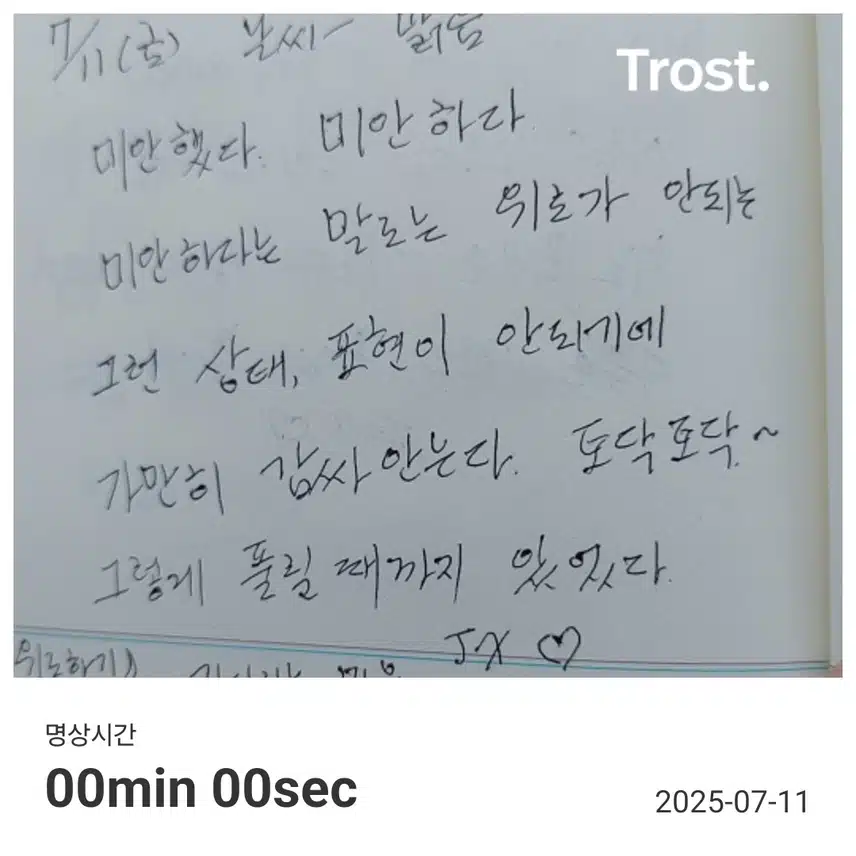 7/11(금) 날씨~ 맑음
Trost.
미안했다. 미안하다.
미안하다는 말로는 위로가 안되는
그런 상태, 표현이 안되기에
가만히 감싸안는다. 토닥토닥~
그렇게 풀릴때까지 있었다.
JX ♡
위로하기
명상시간
00min 00sec
2025-07-11